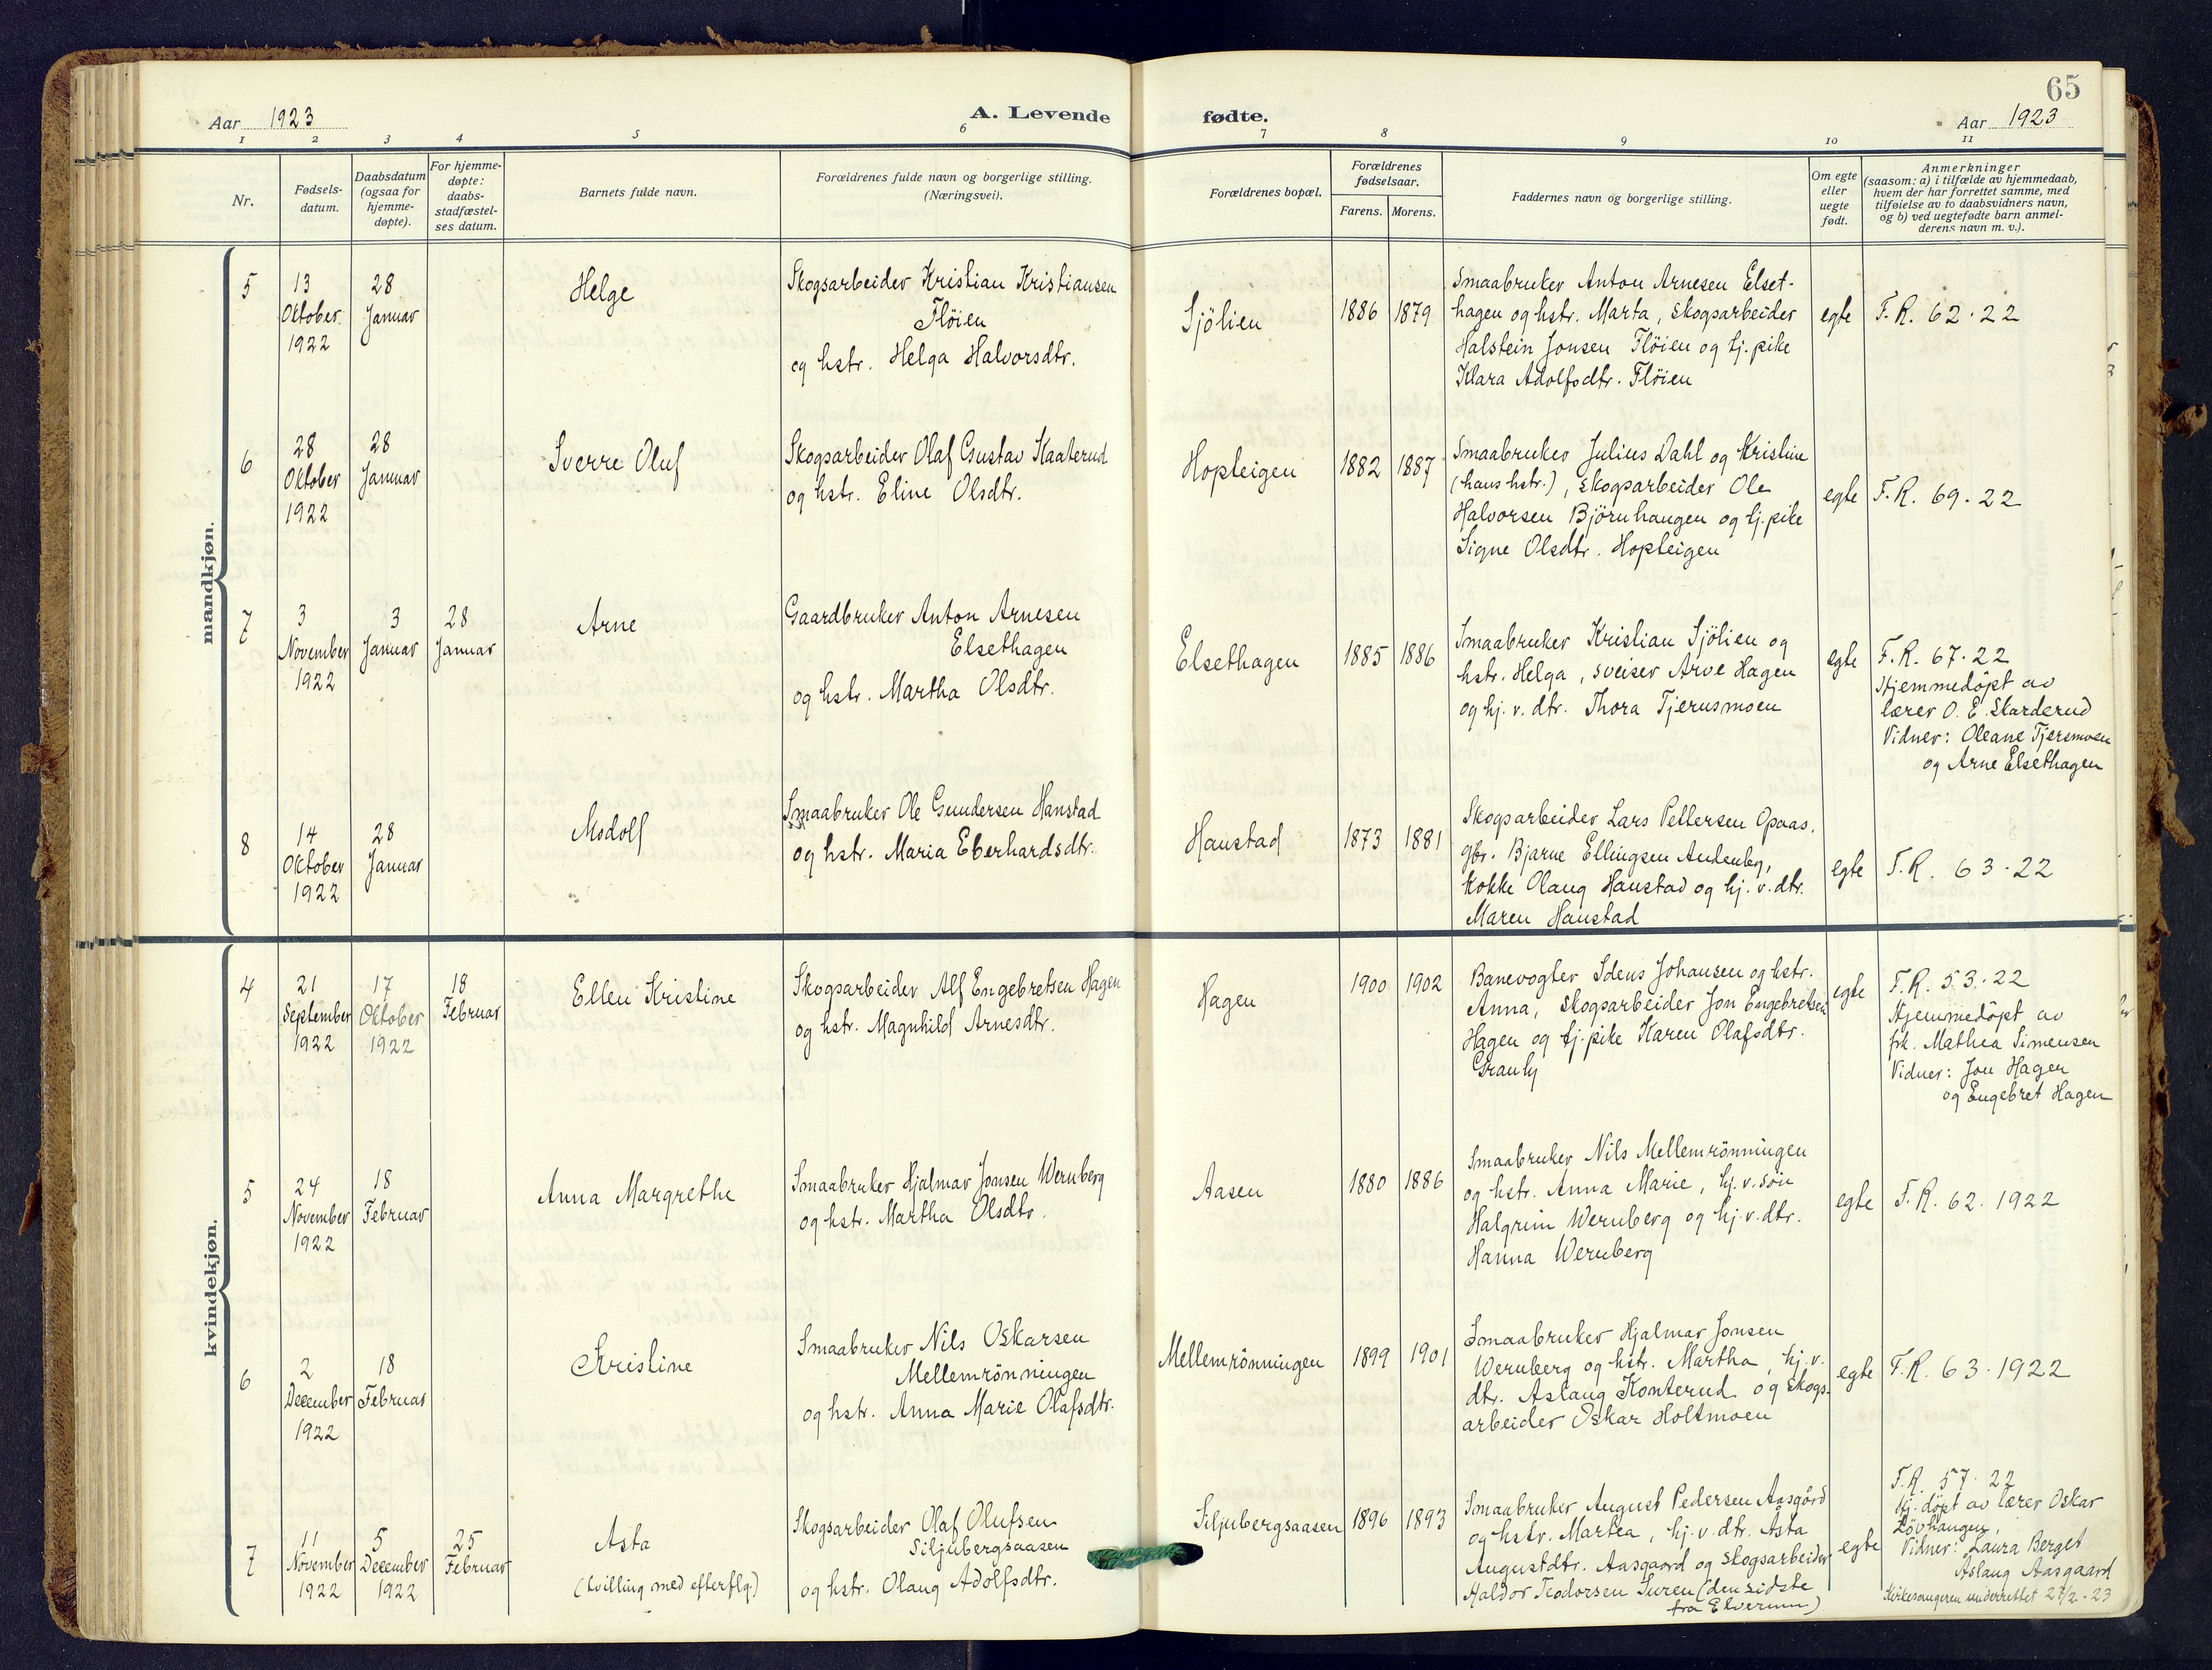 65
Aar 1923
A. Levende
fødte.
Aar 1923
1 2 3 4 5 6 7 8 9 10 11
Nr.
Fødsels-
datum.
Daabsdatum
(ogsaa for
hjemme-
døpte).
For hjemme-
døpte:
daabs-
stadfæstel-
ses datum.
Barnets fulde navn.
Forældrenes fulde navn og borgerlige stilling.
(Næringsvei).
Forældrenes bopæl.
Forældrenes
fødselsaar.
Farens. Morens.
Faddernes navn og borgerlige stilling.
Om egte
eller
uegte
født.
Anmerkninger
(saasom: a) i tilfælde av hjemmedaab,
hvem der har forrettet samme, med
tilføielse av to daabsvidners navn,
og b) ved uegtefødte barn anmel-
derens navn m. v.).
mandkjøn.
5
13
Oktober
1922
28
Januar
Helge
Skogsarbeider Kristian Kristiansen
Fløien
og hstr. Helga Halvorsdtr.
Sjölien
1886
1879
Smaabruker Anton Arnesen Elset-
hagen og hstr. Marta, skogsarbeider
Halstein Jonsen Fløien og tj. pike
Klara Adolfsdtr. Fløien
egte
F. R. 62. 22
6
28
Oktober
1922
28
Januar
Sverre Oluf
Skogsarbeider Olaf Gustav Kaaterud
og hstr. Eline Olsdtr.
Hopleigen
1882
1887
Smaabruker Julius Dahl og Kristine
(hans hstr.), skogsarbeider Ole
Halvorsen Björnhaugen og tj. pike
Signe Olsdtr. Hopleigen
egte
F. R. 69. 22
7
3
November
1922
3
Januar
28
Januar
Arne
Gaardbruker Anton Arnesen
Elsethagen
og hstr. Martha Olsdtr.
Elsethagen
1885
1886
Smaabruker Kristian Sjölien og
hstr. Helga, sveiser Arve Hagen
og hj. v. dtr. Thora Tjernsmoen
egte
F. R. 67. 22
Hjemmedöpt av
lærer O. E. Skarderud
Vidner: Oleane Tjersmoen
og Arne Elsethagen
8
14
Oktober
1922
28
Januar
Modolf
Smaabruker Ole Gundersen Hanstad
og hstr. Maria Eberhardsdtr.
Hanstad
1873
1881
Skogsarbeider Lars Pettersen Opaas,
gbr. Bjarne Ellingsen
Kokke Olaug Hanstad og hj. v. dtr.
Maren Hanstad
egte
F. R. 63. 22
kvindekjøn.
4
21
September
1922
17
Oktober
1922
18
Februar
Ellen Kristine
Skogsarbeider Alf Engebretsen Hagen
og hstr. Magnhild Arnesdtr.
Hagen
1900
1902
Banevogter Johansen og hstr.
Anna, skogsarbeider Jon Engebretsen
Hagen og tj. pike Karen Olafsdtr.
Granly
egte
F. R. 53. 22
Hjemmedöpt av
frk. Mathea Simensen
Vidner: Jon Hagen
og Engebret Hagen
5
24
November
1922
18
Februar
Anna Margrethe
Smaabruker Hjalmar Jonsen Wernberg
og hstr. Martha Olsdtr.
Aasen
1880
1886
Smaabruker Nils Mellemrönningen
og hstr. Anna Marie, hj. v. sön
Halgrim Wernberg og hj. v. dtr.
Hanna Wernberg
egte
F. R. 62. 1922
6
2
December
1922
18
Februar
Kristine
Smaabruker Nils Oskarsen
Mellemrönningen
og hstr. Anna Marie Olafsdtr.
Mellemrönningen
1899
1901
Smaabruker Hjalmar Jonsen
Wernberg og hstr. Martha, hj. v.
dtr. Aslaug Konterud og skogs-
arbeider Oskar Holtmoen
egte
F. R. 63. 1922
7
11
November
1922
5
December
1922
25
Februar
Asta
(tvilling med efterflg.)
Skogsarbeider Olaf Olufsen
Siljubergsaasen
og hstr. Olaug Adolfsdtr.
Siljubergsaasen
1896
1893
Smaabruker August Pedersen Aasgård
og hstr. Martea, hj. v. dtr. Asta
Augustdtr. Aasgaard og skogsarbeider
Haldor Teodorsen Suren (den sidste
fra Elverum)
egte
F. R. 57. 22
Hj. döpt av lærer Oskar
Lövhaugen,
Vidner: Laura Berget
Aslaug Aasgaard
Kirkesangeren underrettet 27/2-23